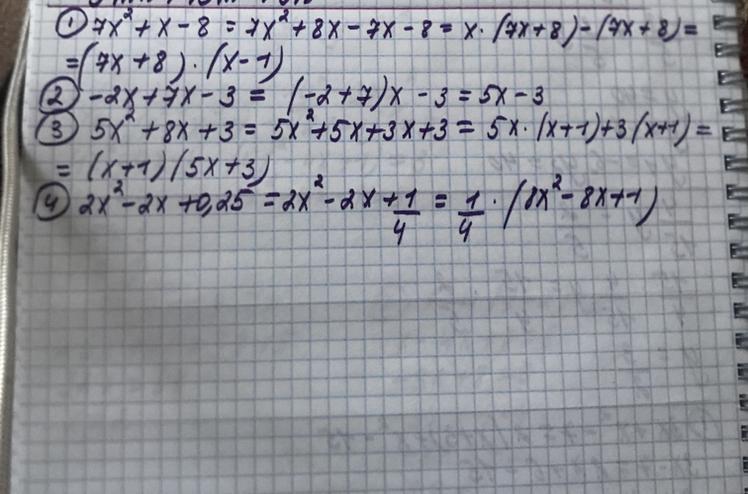 ① 7x² + x - 8 = 7x² + 8x - 7x - 8 = x · (7x + 8) - (7x + 8) =
= (7x + 8) · (x - 1)
② -2x + 7x - 3 = (-2 + 7)x - 3 = 5x - 3
③ 5x² + 8x + 3 = 5x² + 5x + 3x + 3 = 5x · (x + 1) + 3(x + 1) =
= (x + 1)(5x + 3)
④ 2x² - 2x + 0,25 = 2x² - 2x + 1/4 = 1/4 · (8x² - 8x + 1)